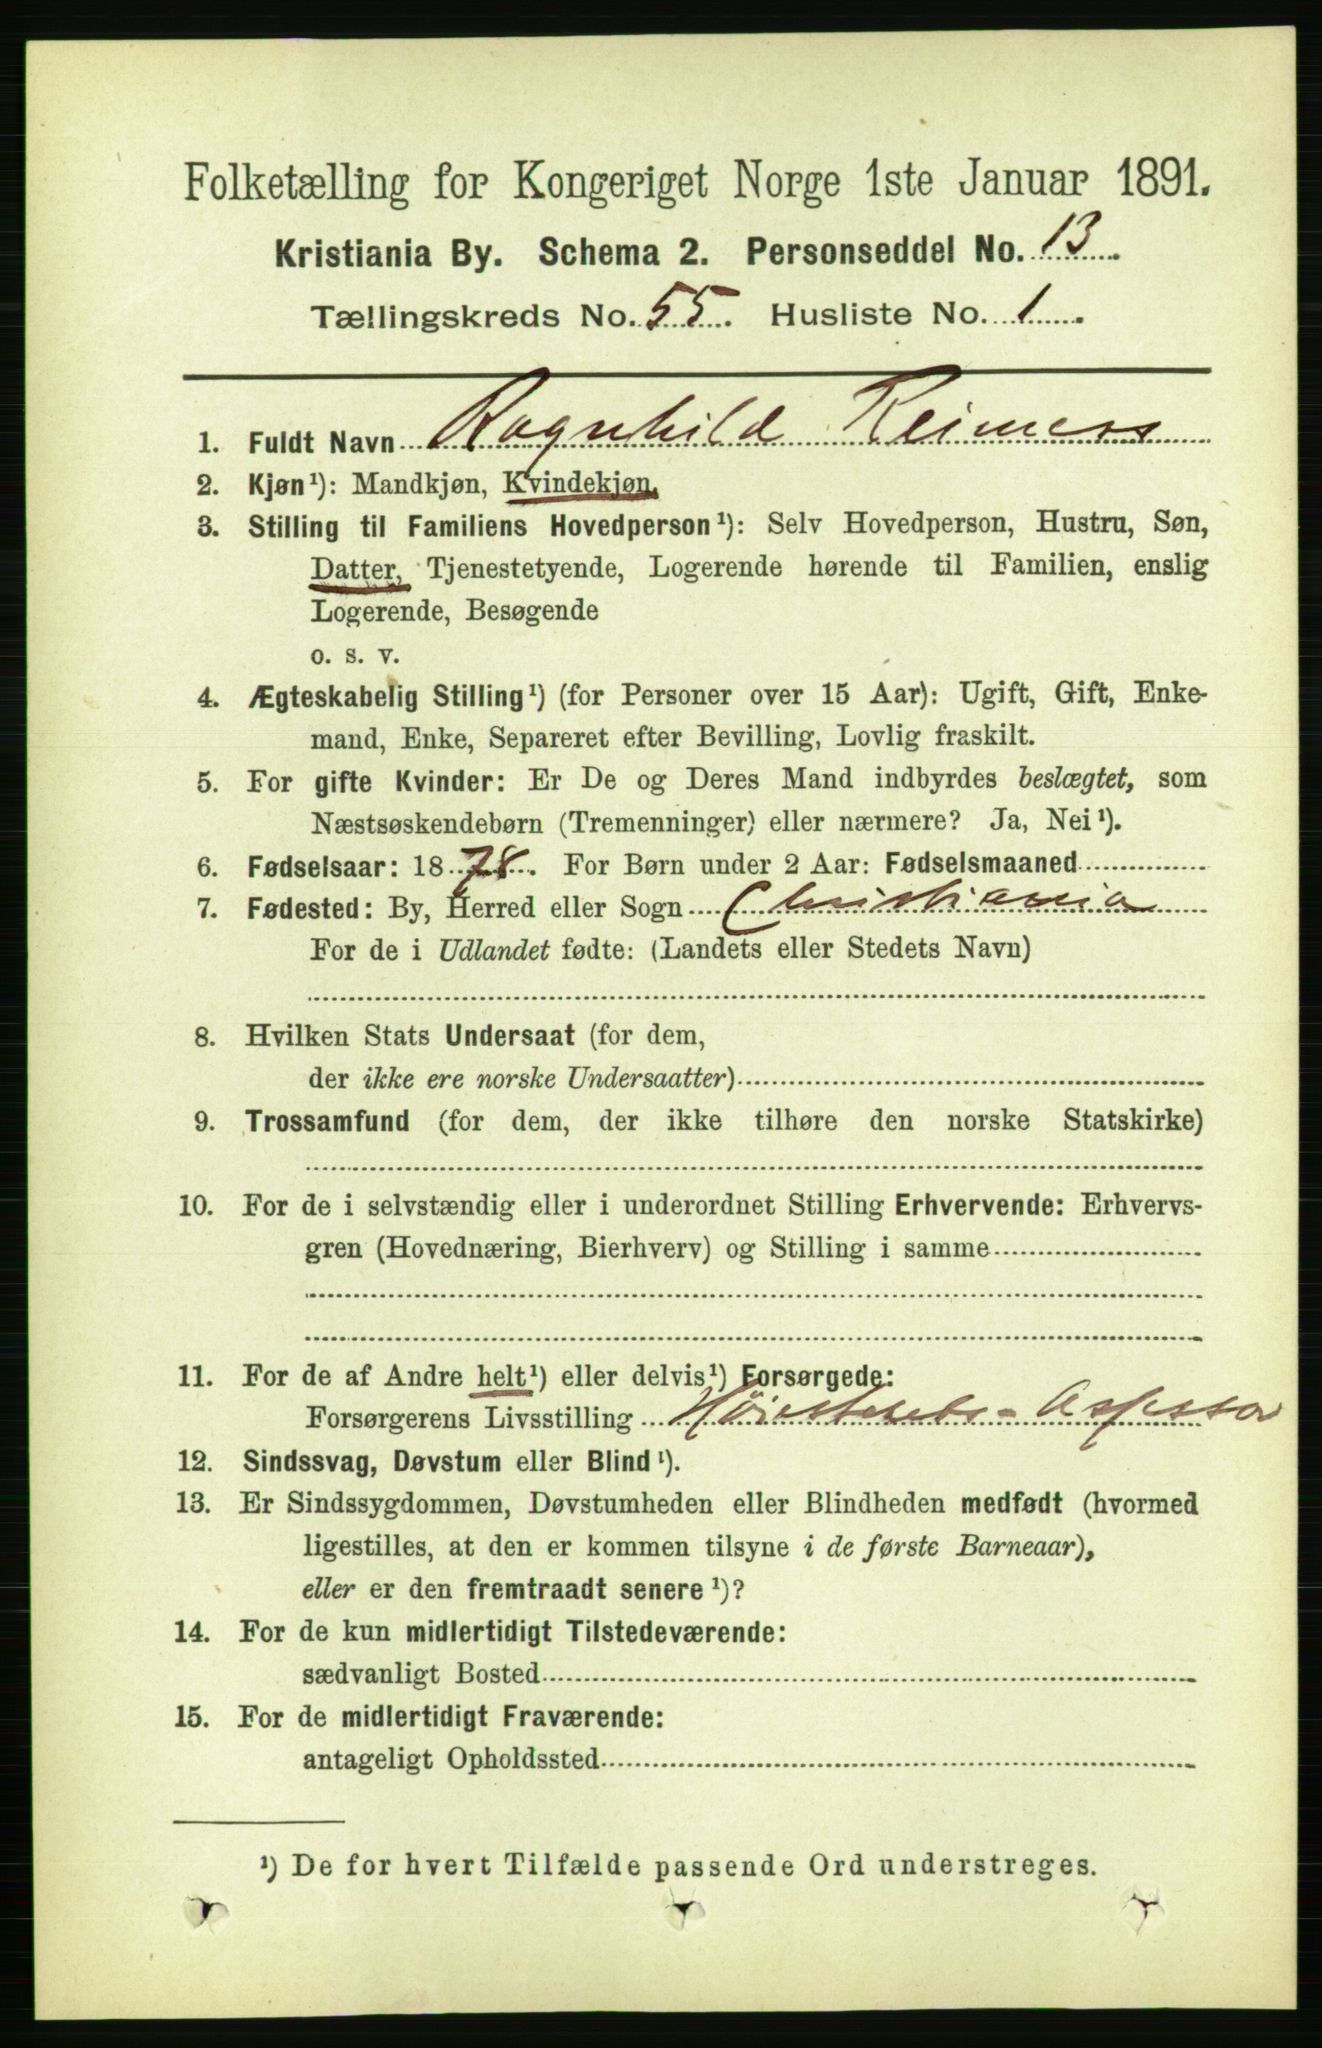 Folketælling for Kongeriget Norge 1ste Januar 1891.
Kristiania By. Schema 2. Personseddel No. 13.
Tællingskreds No. 55. Husliste No. 1.
1. Fuldt Navn Ragnhild Reimers
2. Kjøn¹): Mandkjøn, Kvindekjøn.
3. Stilling til Familiens Hovedperson¹): Selv Hovedperson, Hustru, Søn,
Datter, Tjenestetyende, Logerende hørende til Familien, enslig
Logerende, Besøgende
o. s. v.
4. Ægteskabelig Stilling¹) (for Personer over 15 Aar): Ugift, Gift, Enke-
mand, Enke, Separeret efter Bevilling, Lovlig fraskilt.
5. For gifte Kvinder: Er De og Deres Mand indbyrdes beslægtet, som
Næstsøskendebørn (Tremenninger) eller nærmere? Ja, Nei¹).
6. Fødselsaar: 1878. For Børn under 2 Aar: Fødselsmaaned
7. Fødested: By, Herred eller Sogn Christiania
For de i Udlandet fødte: (Landets eller Stedets Navn)
8. Hvilken Stats Undersaat (for dem,
der ikke ere norske Undersaatter)
9. Trossamfund (for dem, der ikke tilhøre den norske Statskirke)
10. For de i selvstændig eller i underordnet Stilling Erhvervende: Erhvervs-
gren (Hovednæring, Bierhverv) og Stilling i samme
11. For de af Andre helt¹) eller delvis¹) Forsørgede:
Forsørgerens Livsstilling Høiesterets-Assessor
12. Sindssvag, Døvstum eller Blind¹).
13. Er Sindssygdommen, Døvstumheden eller Blindheden medfødt (hvormed
ligestilles, at den er kommen tilsyne i de første Barneaar),
eller er den fremtraadt senere¹)?
14. For de kun midlertidigt Tilstedeværende:
sædvanligt Bosted
15. For de midlertidigt Fraværende:
antageligt Opholdssted
¹) De for hvert Tilfælde passende Ord understreges.